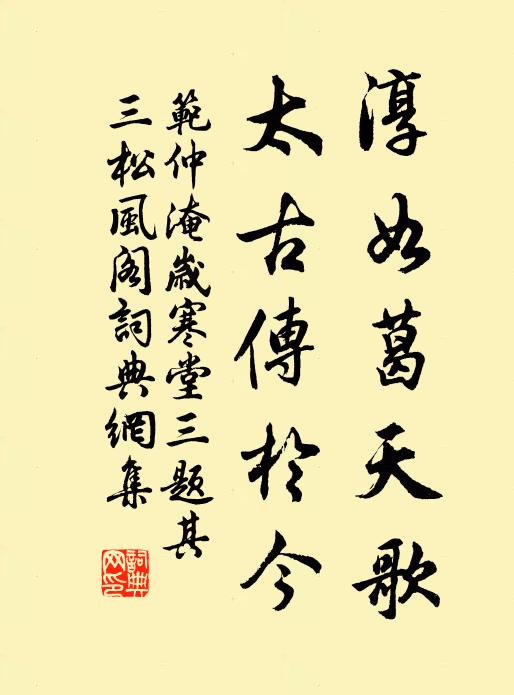 淳如葛天歌
太古傳於今
範仲淹歲寒堂三題其
三松風阁詞典網集
詞典网印